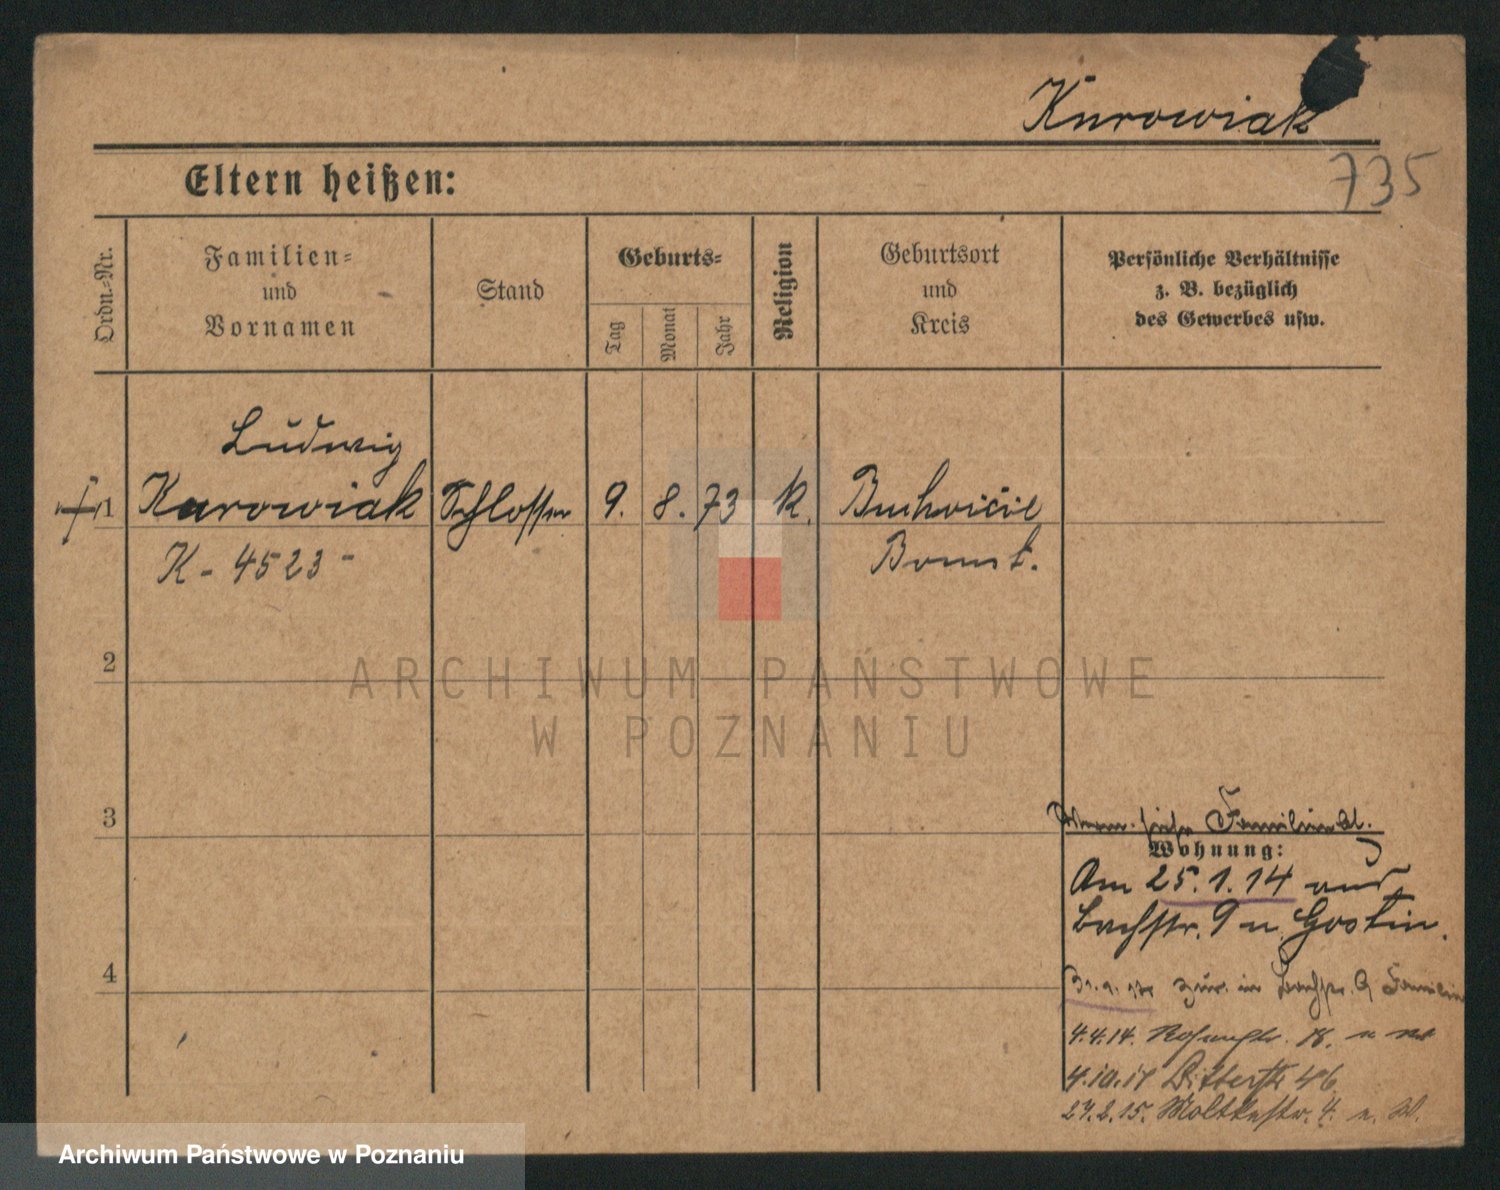 Kurowiak
735
Eltern heißen:
Ordn.-Nr.
Familien-
und
Vornamen
Stand
Geburts-
Tag
Monat
Jahr
Religion
Geburtsort
und
Kreis
Persönliche Verhältnisse
z. B. bezüglich
des Gewerbes usw.
Ludwig
1 Kurowiak Schlosser 9. 8. 73 k.
K - 4523 - Bomst.
2
ARCHIWUM PAŃSTWOWE
W POZNANIU
3
siehe Familienbl.
Wohnung:
Am 25.1.14 aus
Bachstr. 9 n. Gostin.
zur. in Bachstr. 9 Familie
4
4.4.14. 18.
4.10.14 46
27.2.15. Moltkestr. 4.
Archiwum Państwowe w Poznaniu